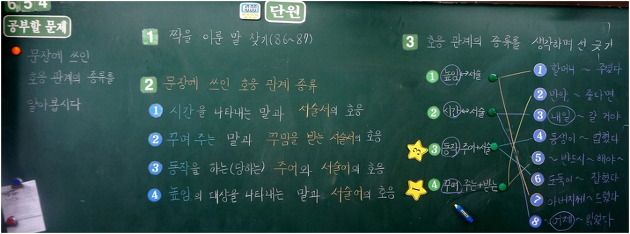 6, 5, 4
단원
공부할 문제
문장에 쓰인
호응 관계의 종류를
알아봅시다
1 짝을 이룬 말 찾기(86~87)
2 문장에 쓰인 호응 관계 종류
1 시간을 나타내는 말과 서술어의 호응
2 꾸며 주는 말과 꾸밈을 받는 서술어의 호응
3 동작을 하는(당하는) 주어와 서술어의 호응
4 높임의 대상을 나타내는 말과 서술어의 호응
3 호응 관계의 종류를 생각하며 선 긋기
1 높임↔서술
2 시간↔서술
3 동작,주어+서술
4 꾸며,주는+받는
1 할머니 ~ 주셨다
2 만약 ~ 준다면
3 내일 ~ 갈 거야
4 동생이 ~ 업혔다
5 ~ 반드시 ~ 해야 ~
6 도둑이 ~ 잡혔다
7 아버지께 ~ 드렸다
8 어제 ~ 읽었다